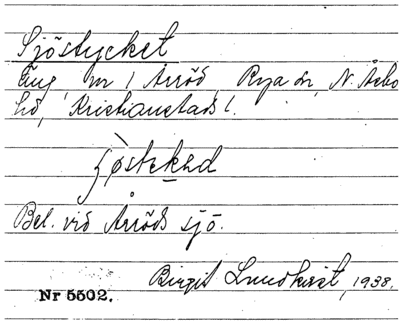 Sjöstycket
Äng, nr 1 Arröd, Rya sn, N. Åsbo
hd, Kristianstads l.
Bel. vid Arröds sjö.
Birgit Lundkvist, 1938.
Nr 5502.